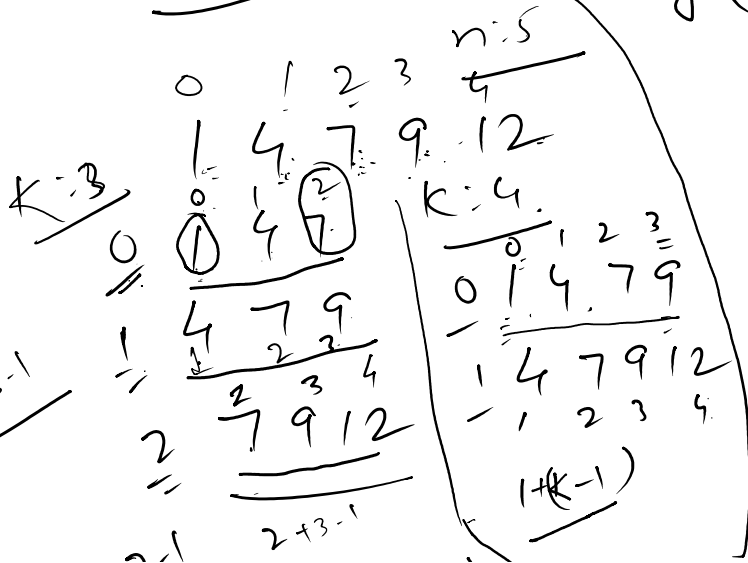 n=5
0 1 2 3 4
1 4 7 9 12
K=3
0 1 2
0 1 4 7
1 4 7 9
1 2 3
2 3 4
2 7 9 12
2+3-1
K=4
0 1 2 3
0 1 4 7 9
1 4 7 9 12
1 2 3 4
1+(K-1)
-1